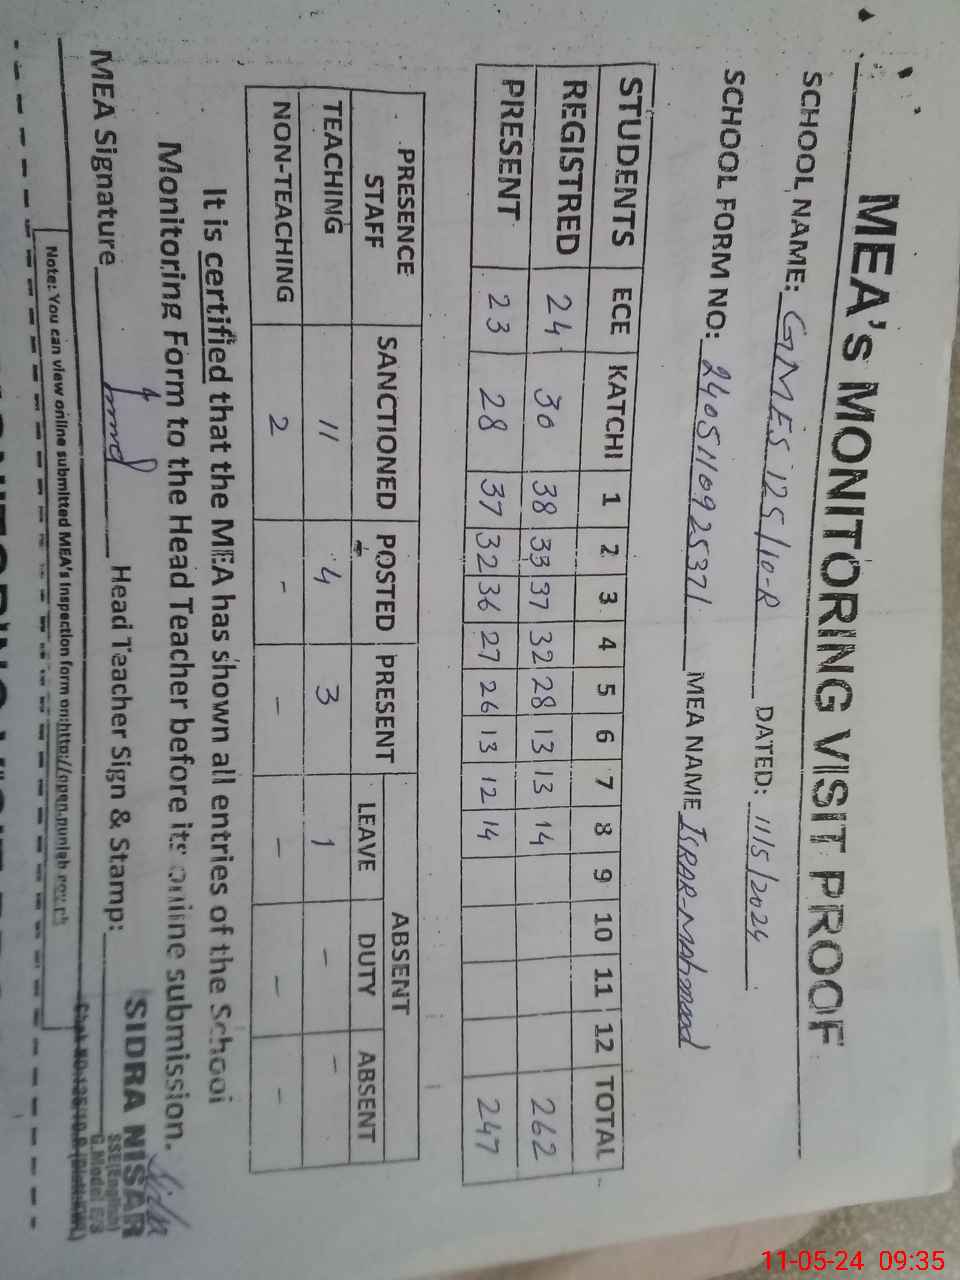 MEA's MONITORING VISIT PROOF
SCHOOL NAME: GMES 125/10-R DATED: 11/5/2024
SCHOOL FORM NO: 240511092537/ MEA NAME ISRAR-Mahmood
STUDENTS ECE KATCHI 1 2 3 4 5 6 7 8 9 10 11 12 TOTAL
REGISTRED 24 30 38 33 37 32 28 13 13 14 262
PRESENT 23 28 37 32 36 27 26 13 12 14 247
PRESENCE STAFF SANCTIONED POSTED PRESENT ABSENT
LEAVE DUTY ABSENT
TEACHING 11 4 3 1 - -
NON-TEACHING 2 - - - - -
It is certified that the MEA has shown all entries of the School
Monitoring Form to the Head Teacher before its online submission.
MEA Signature Head Teacher Sign & Stamp:
SIDRA NISAR
SSE(English)
G.Model E/S
Chak NO.125/10-R
Note: You can view online submitted MEA's Inspection form on:http://open.punjab.gov.pk
11-05-24 09:35